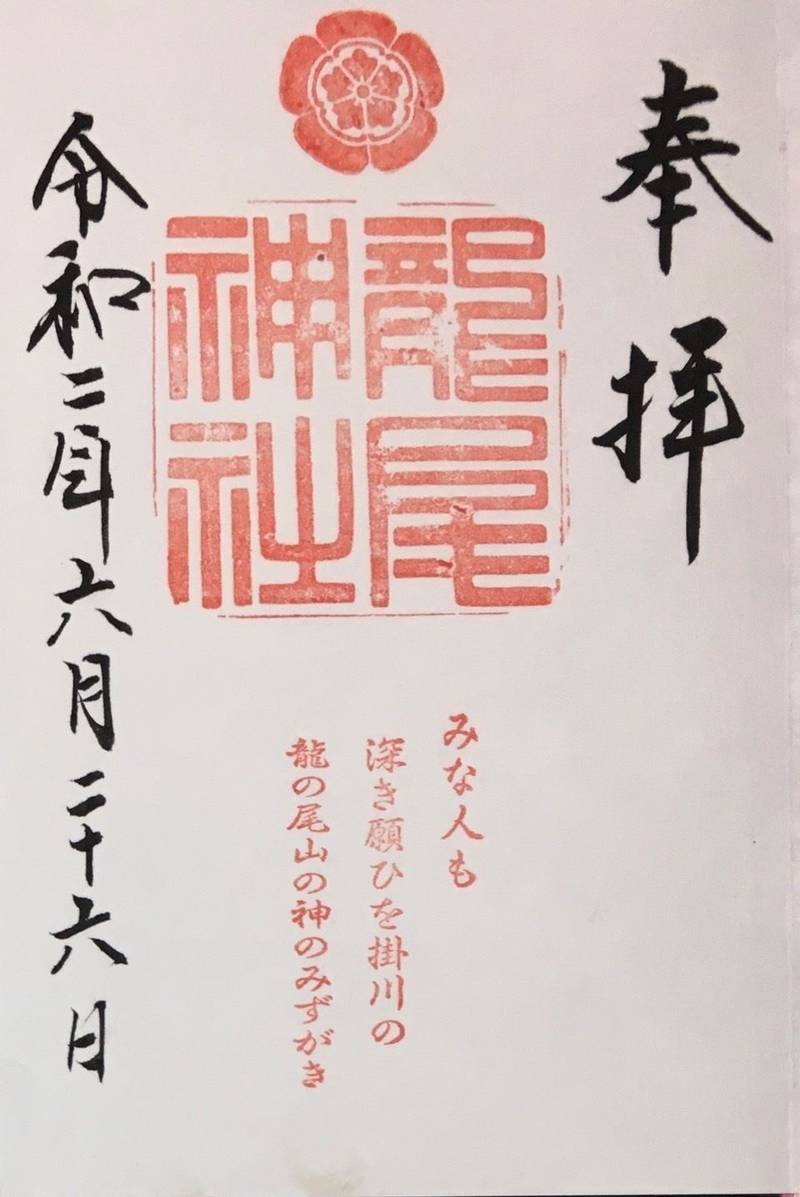 奉拝
龍尾
神社
みな人も
深き願ひを掛川の
龍の尾山の神のみずがき
令和二年六月二十六日